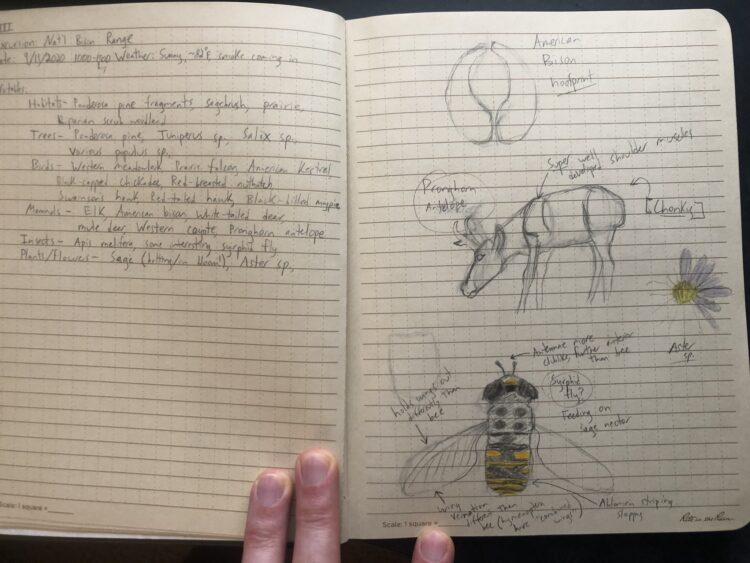 III
Excursion: Nat'l Bison Range
Date: 9/13/2020 Weather: Sunny, ~82°F smoke coming in
Notables:
Habitats- Ponderosa pine fragments, sagebrush, prairie,
Riparian scrub woodland
Trees- Ponderosa pine, Juniperus sp, Salix sp.,
Various populus sp.
Birds- Western meadowlark, Prairie falcon, American Kestrel
Black-capped chickadee, Red-breasted nuthatch
Swainson's hawk, Red-tailed hawk, Black-billed magpie
Mammals- Elk, American bison, White-tailed deer,
mule deer, Western coyote, Pronghorn antelope
Insects- Apis mellifera, some interesting syrphid fly
Plants/Flowers- Sage (in bloom!), Aster sp.,
Scale: 1 square =
American
Bison
hoofprint
Super well
developed shoulder muscles
Pronghorn
Antelope
[Chonky]
Aster
sp.
Antennae more
clublike, further anterior
than bee
Syrphid
fly?
Feeding on
sage nectar
holds wings out
differently than
bee
wing
venation
different than
bee (hymenoptera
have wings)
Abdomen striping
sloppy
Scale: 1 square =
Rite in the Rain